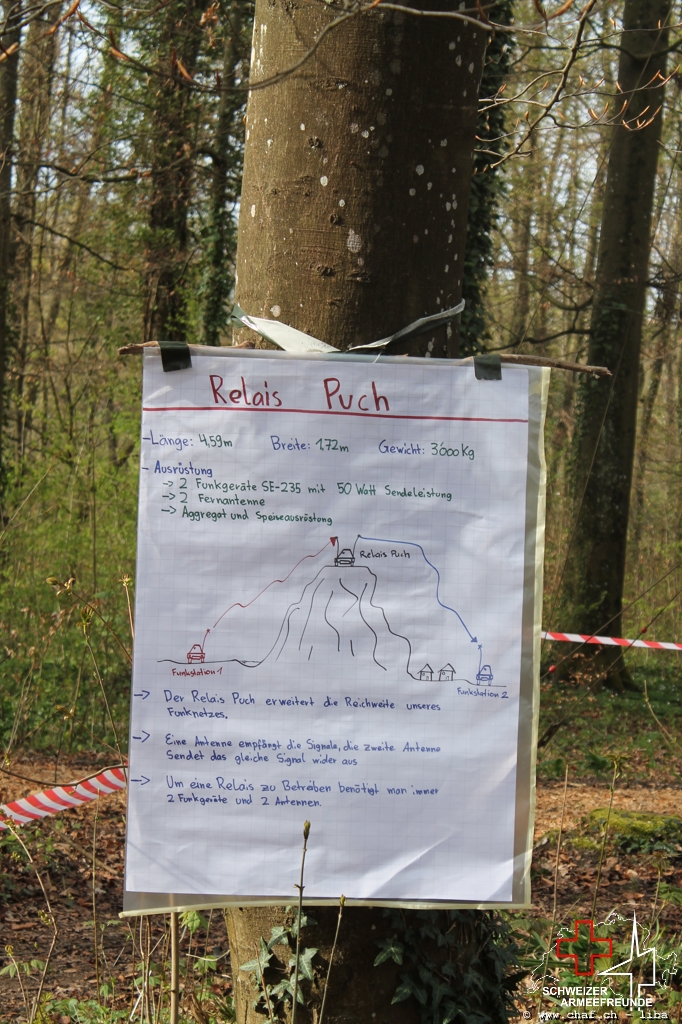 Relais Puch
-Länge: 4,59m Breite: 1,72m Gewicht: 3'000Kg
- Ausrüstung
-> 2 Funkgeräte SE-235 mit 50 Watt Sendeleistung
-> 2 Fernantenne
-> Aggregat und Speiseausrüstung
Relais Puch
Funkstation 1
Funkstation 2
-> Der Relais Puch erweitert die Reichweite unseres
Funknetzes.
-> Eine Antenne empfängt die Signale, die zweite Antenne
Sendet das gleiche Signal wider aus
-> Um eine Relais zu Betreiben benötigt man immer
2 Funkgeräte und 2 Antennen.
SCHWEIZER
ARMEEFREUNDE
© www.chaf.ch - liba